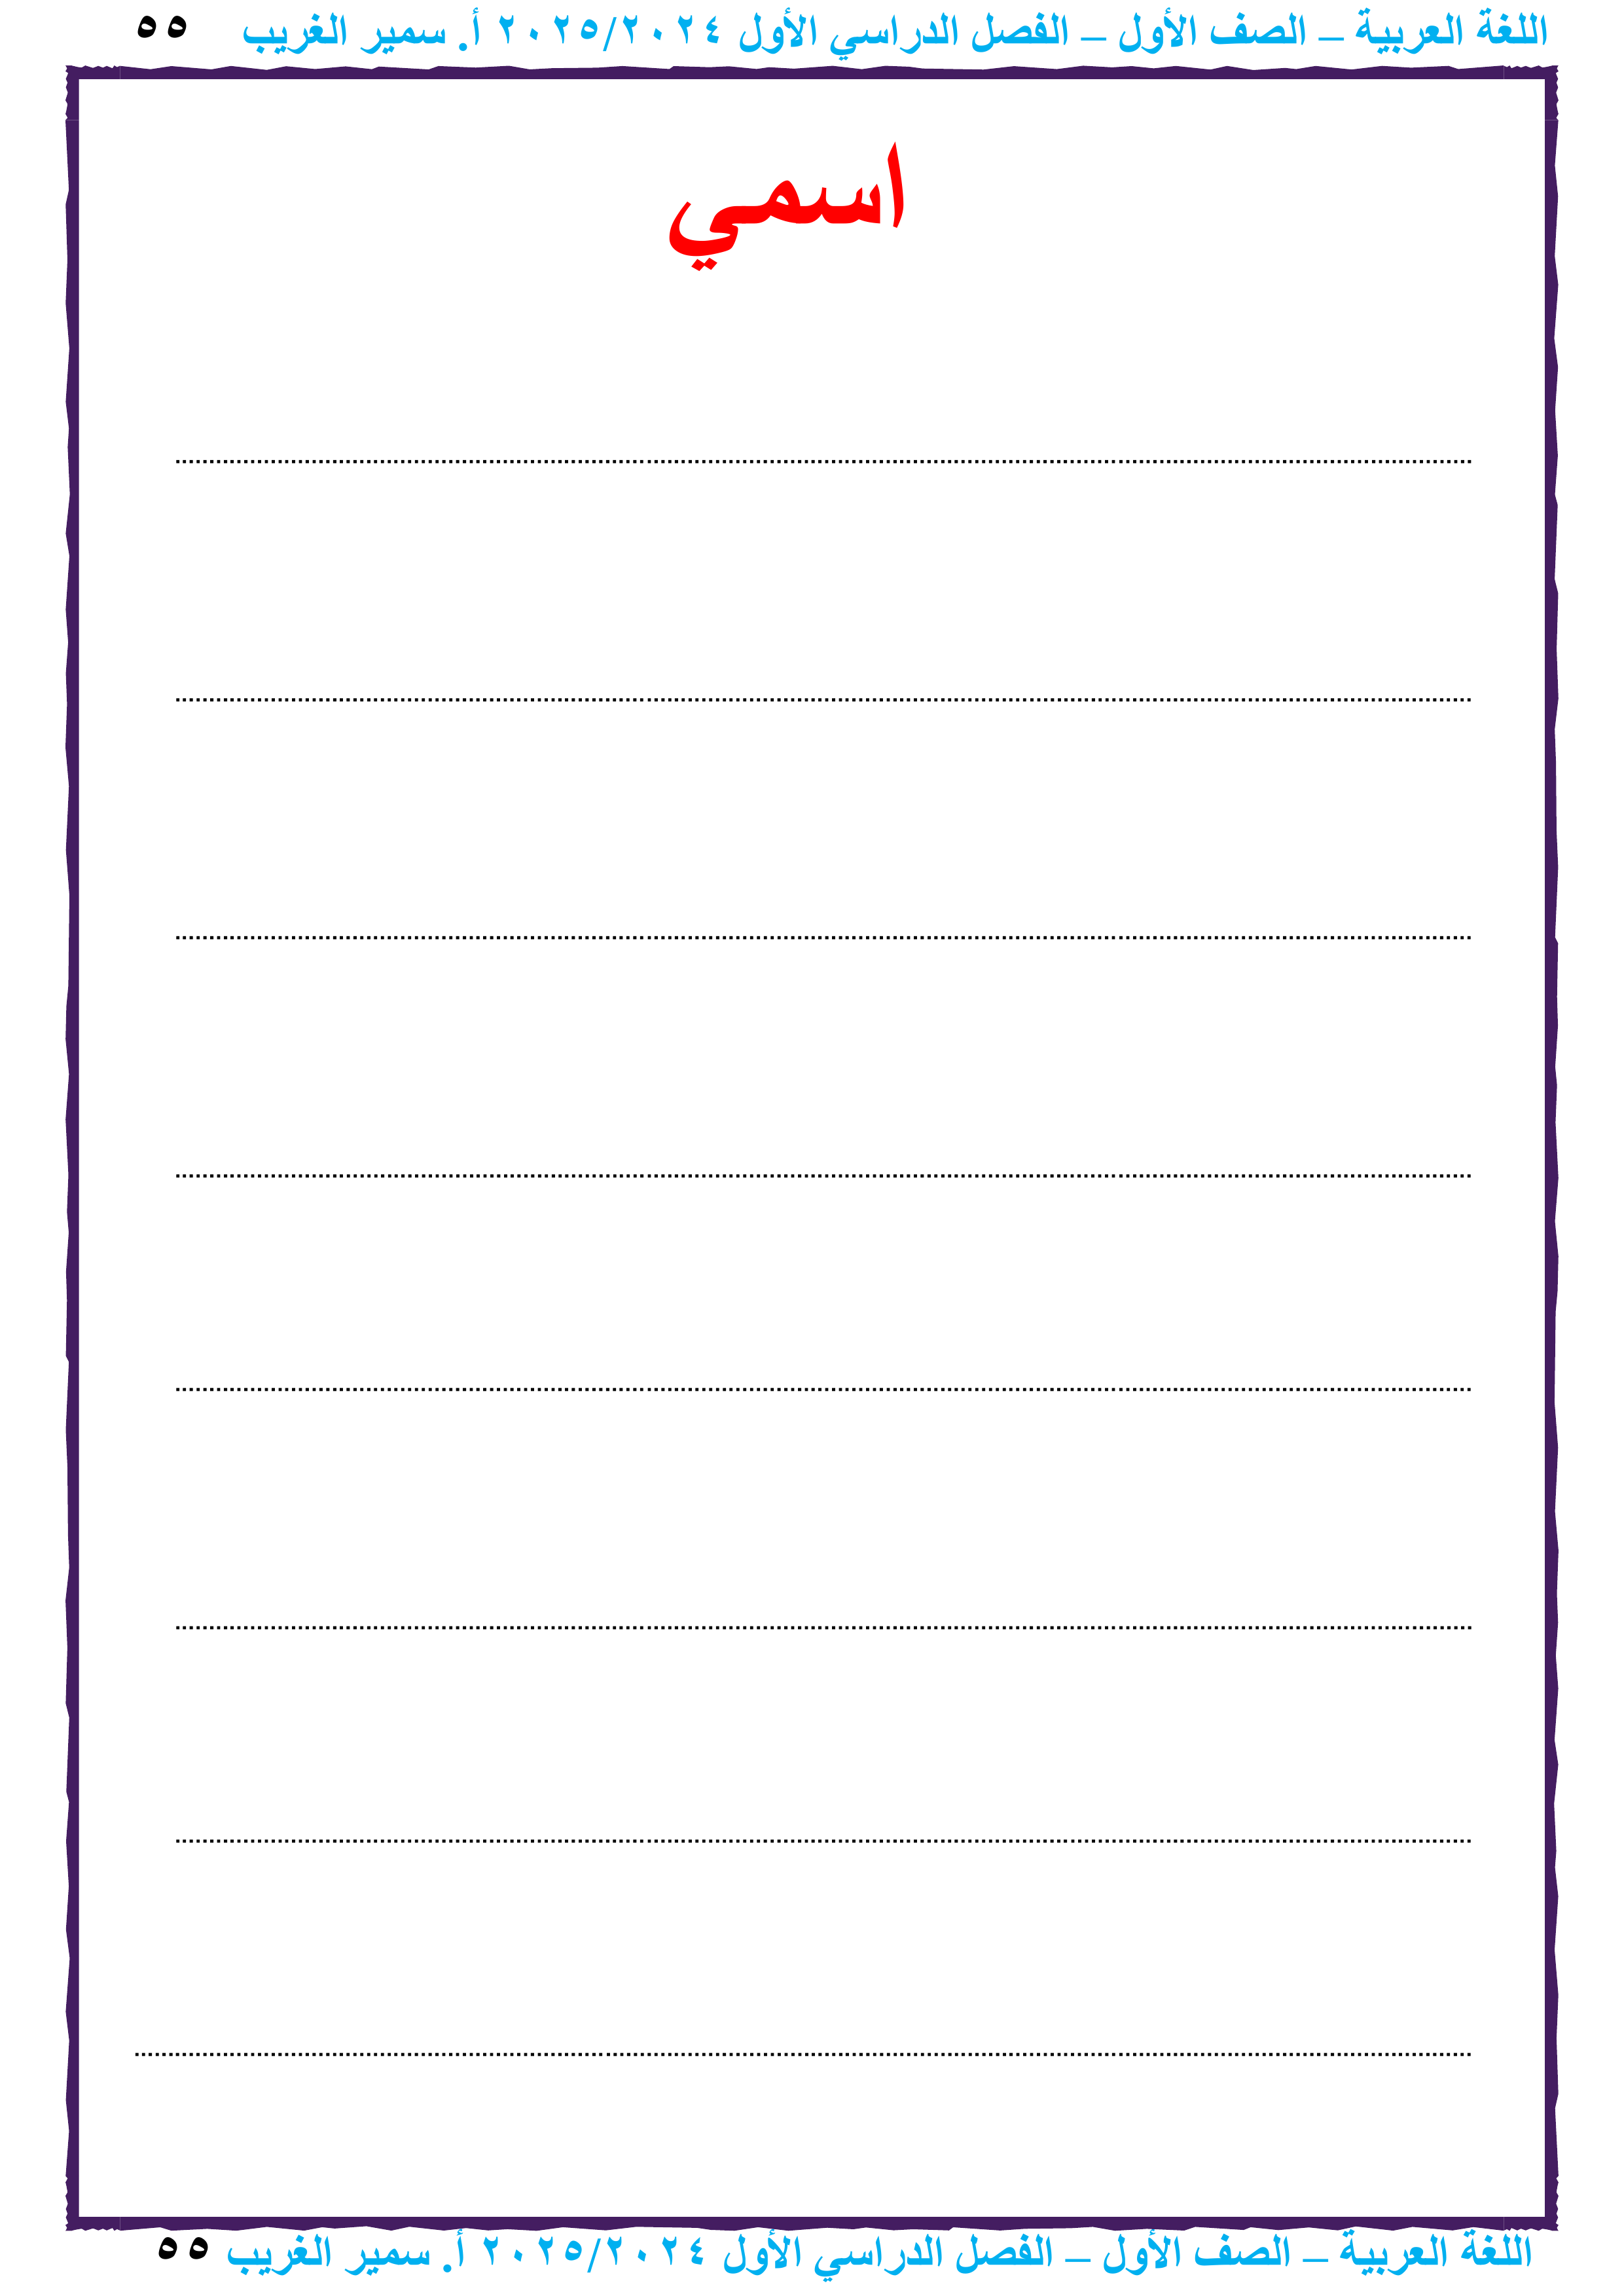 اللغة العربية – الصف الأول – الفصل الدراسي الأول ٢٠٢٥/٢٠٢٤ أ. سمير الغريب ٥٥
اسمي
................................................................................
................................................................................
................................................................................
................................................................................
................................................................................
................................................................................
................................................................................
................................................................................
اللغة العربية – الصف الأول – الفصل الدراسي الأول ٢٠٢٥/٢٠٢٤ أ. سمير الغريب ٥٥